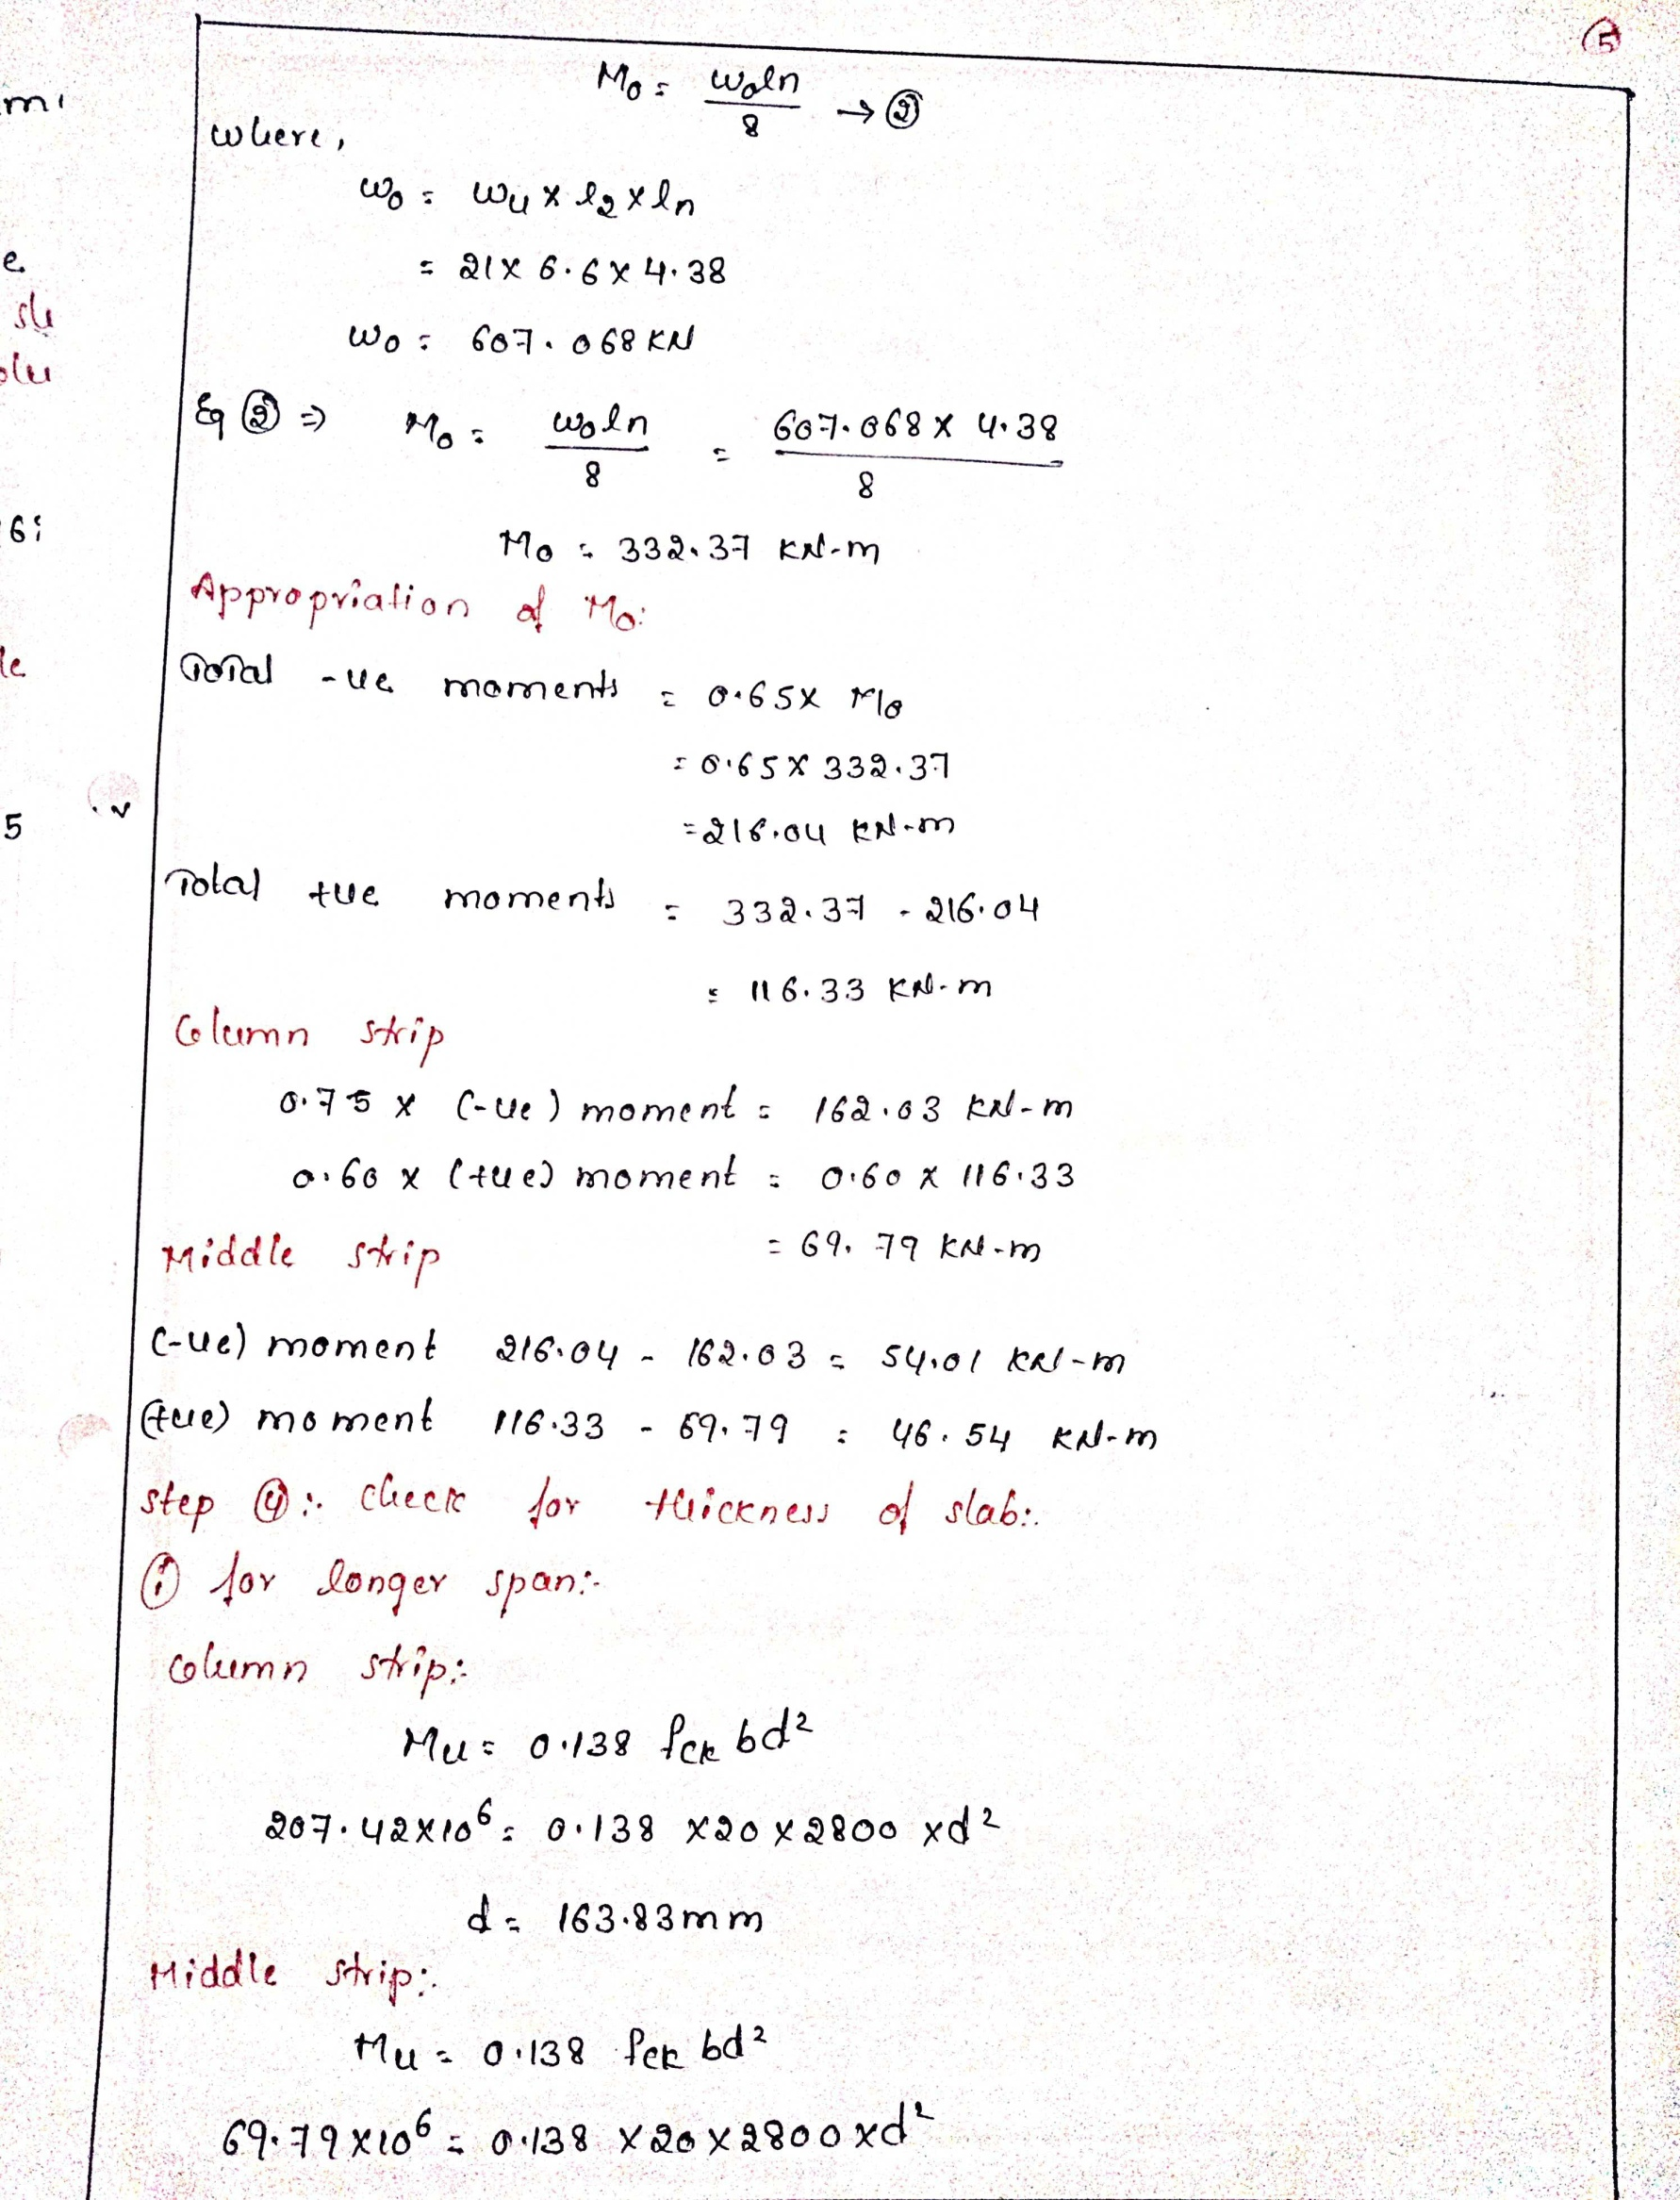 5
M₀ = W₀ln / 8 → ②
where,
W₀ = Wu × l₂ × ln
= 21 × 6.6 × 4.38
W₀ = 607.068 KN
Eq ② ⇒ M₀ = W₀ln / 8 = 607.068 × 4.38 / 8
M₀ = 332.37 KN-m
Appropriation of M₀:
Total -ve moments = 0.65 × M₀
= 0.65 × 332.37
= 216.04 KN-m
Total +ve moments = 332.37 - 216.04
= 116.33 KN-m
Column strip
0.75 × (-ve) moment = 162.03 KN-m
0.60 × (+ve) moment = 0.60 × 116.33
= 69.79 KN-m
Middle strip
(-ve) moment 216.04 - 162.03 = 54.01 KN-m
(+ve) moment 116.33 - 69.79 = 46.54 KN-m
step ④:. check for thickness of slab:.
① for longer span:-
column strip:-
Mu = 0.138 fck bd²
207.42×10⁶ = 0.138 ×20×2800 ×d²
d = 163.83mm
Middle strip:.
Mu = 0.138 fck bd²
69.79×10⁶ = 0.138 ×20×2800×d²